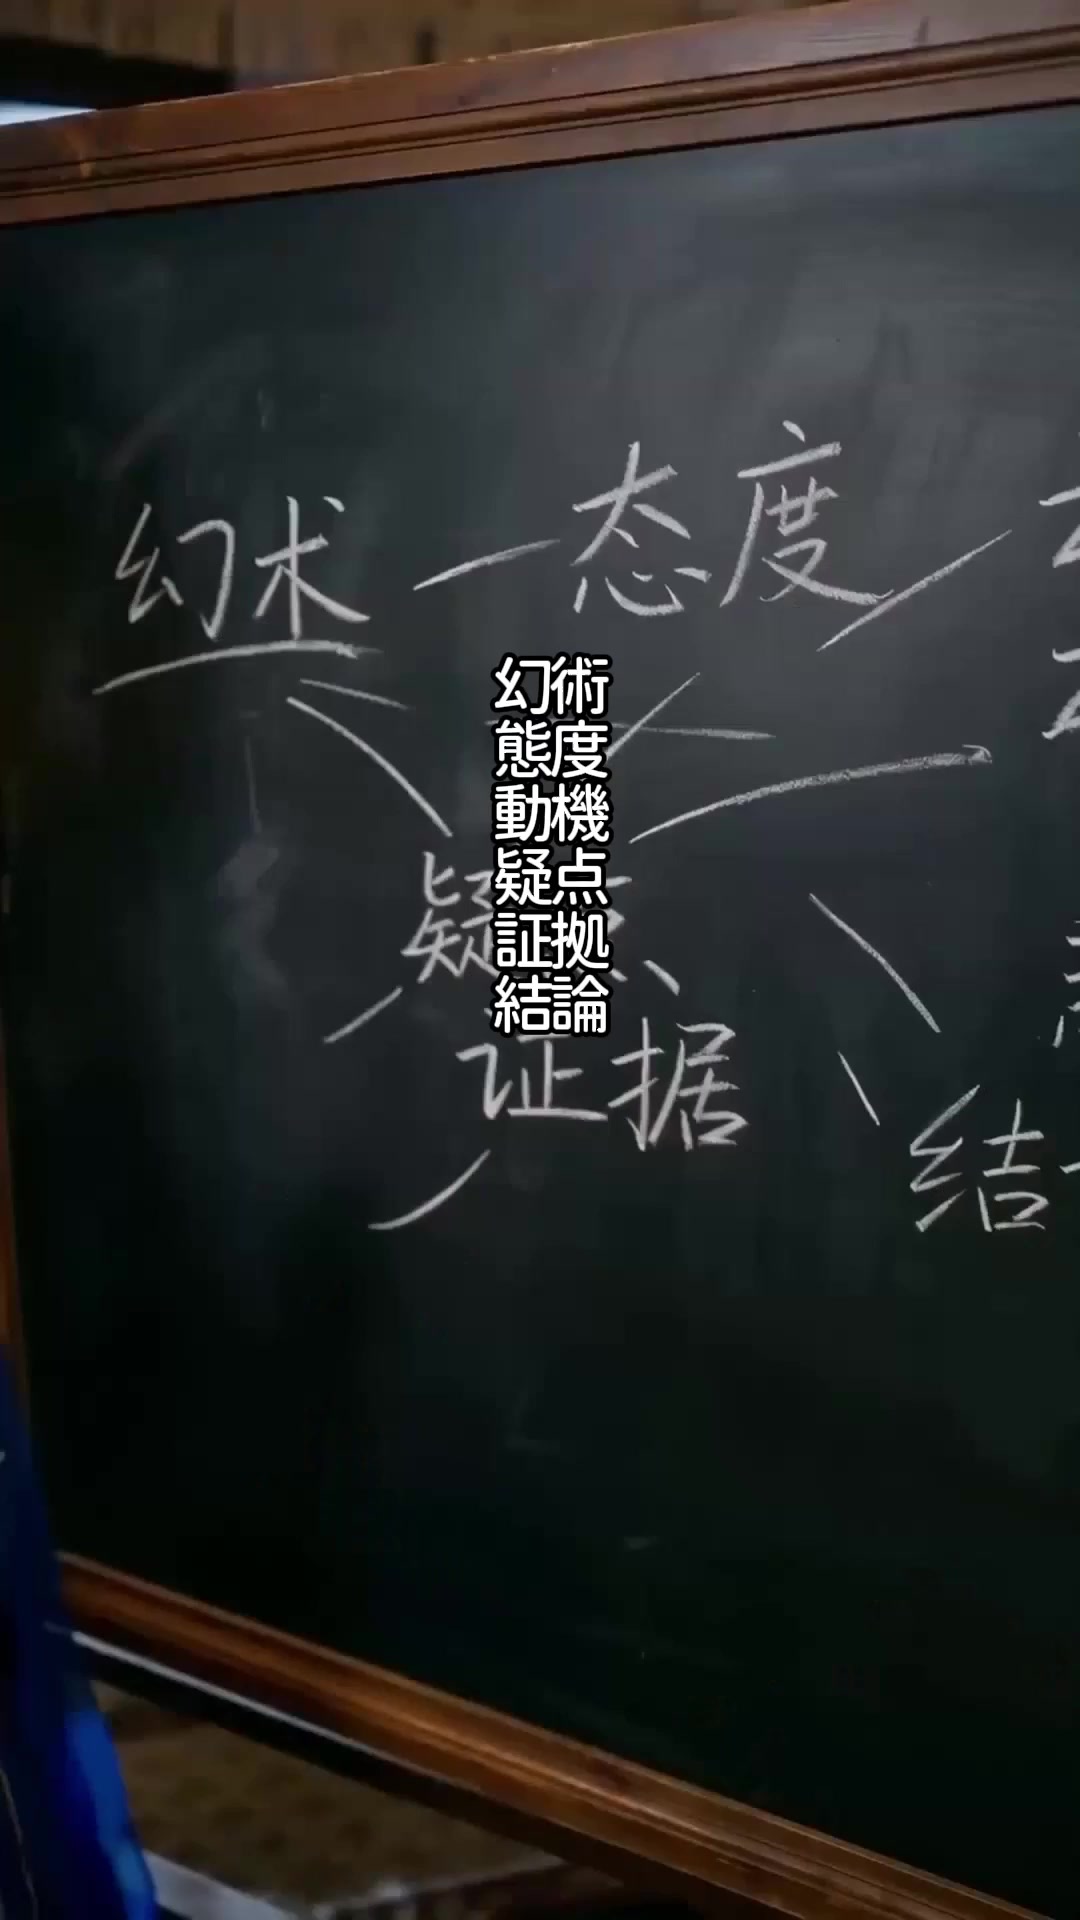 幻术 态度
幻術
態度
動機
疑点
証拠
結論
疑
证据
结